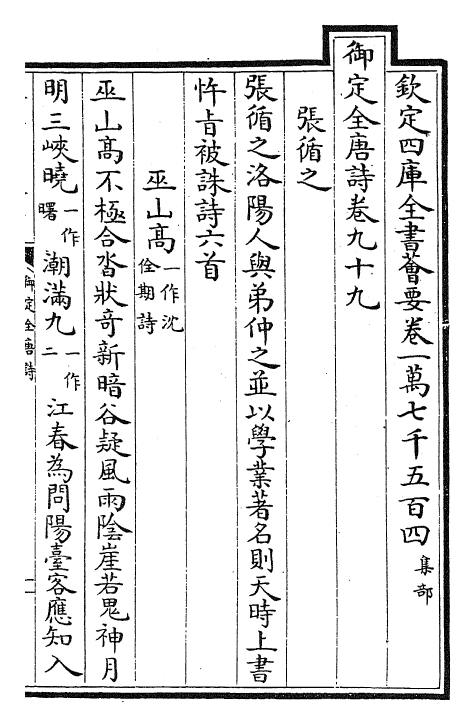 欽定四庫全書薈要卷一萬七千五百四 集部
御定全唐詩卷九十九
張循之
張循之洛陽人與弟仲之並以學業著名則天時上書
忤旨被誅詩六首
巫山高一作沈佺期詩
巫山高不極合沓狀奇新暗谷疑風雨陰崖若鬼神月
明三峽曉一作曙潮滿九一作二江春為問陽臺客應知入
御定全唐詩